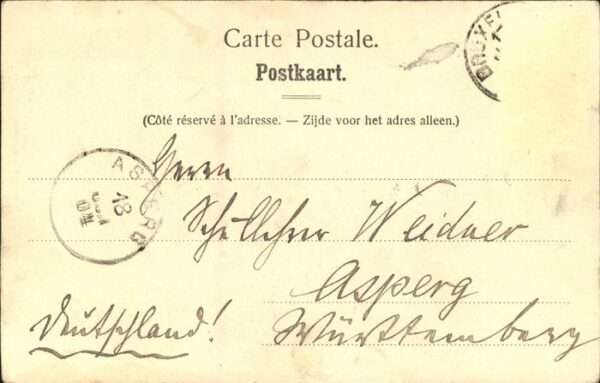 Carte Postale.
Postkaart.
(Côté réservé à l'adresse. — Zijde voor het adres alleen.)
BRUXEL
ASPERG
18
Herrn
Schullehrer Weidner
Asperg
Deutschland! Württemberg